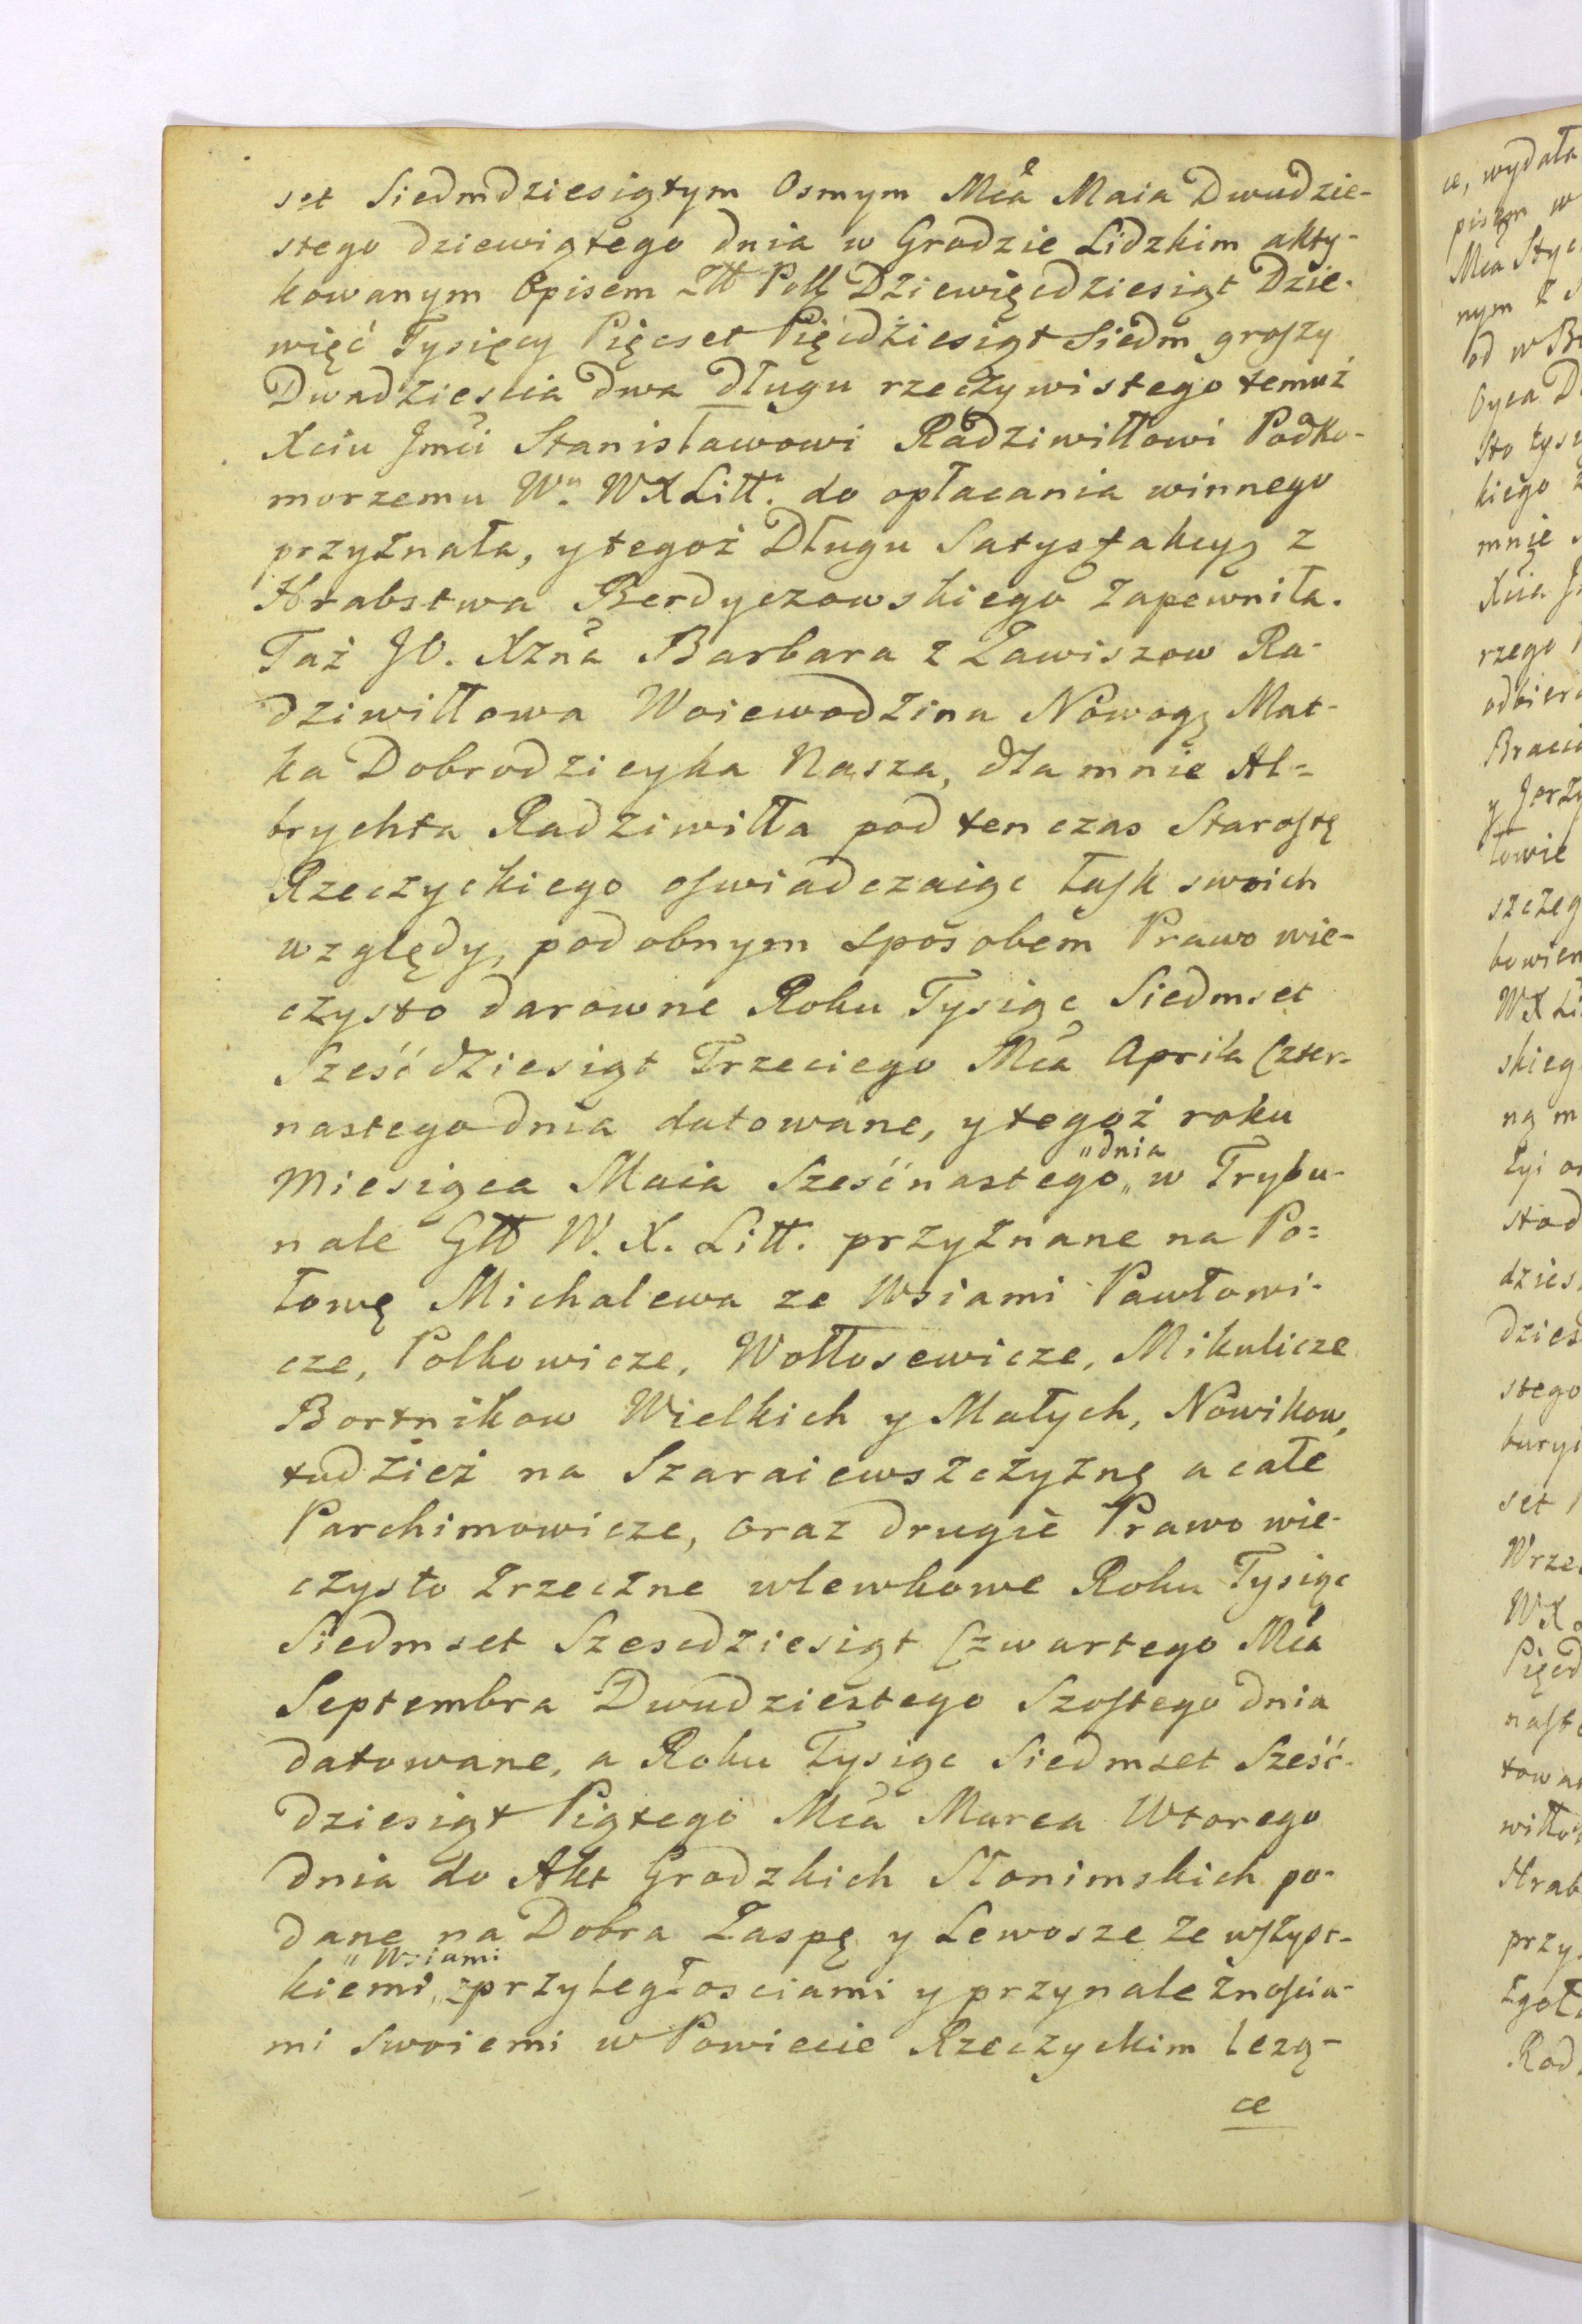 set Siedmdziesiątym Osmym Mca Maia Dwudzie-
stego dziewiątego dnia w Grodzie Lidzkim akty-
kowanym Opisem Złł Poll Dziewięćdziesiąt Dzie-
więć Tysięcy Pięcset Pięćdziesiąt Siedm groszy
Dwadziescia dwa długu rzeczywistego temuż
Xciu Jmci Stanisławowi Radziwiłłowi Podko-
morzemu Wu. WXLitt. do opłacania winnego
przyznała, y tegoż Długu Satysfakcyą z
Hrabstwa Berdyczowskiego zapewniła.
Taż JO. Xzna Barbara z Zawiszow Ra-
dziwiłłowa Woiewodzina Nowogą Mat-
ka Dobrodzieyka Nasza, dla mnie Al=
brychta Radziwiłła pod ten czas Starostę
Rzeczyckiego oswiadczaiąc łask swoich
względy, podobnym sposobem Prawo wie-
czysto darowne Roku Tysiąc Siedmset
Sześćdziesiąt Trzeciego Mca Apryla Czter-
nastego dnia datowane, y tegoż roku
Miesiąca Maia Sześćnastego „dnia„ w Trybu-
nale Głł W. X. Litt. przyznane na Po=
łowę Michalewa ze Wsiami Pawłowi-
cze, Polkowicze, Wołłosewicze, Mikulicze
Bortnikow Wielkich y Małych, Nowikow,
tudzież na Szaraiewszczyznę a całe
Parchimowicze, oraz drugie Prawo wie-
czysto zrzeczne wlewkowe Roku Tysiąc
Siedmset Szescdziesiąt Czwartego Mca
Septembra Dwudziestego Szostego dnia
datowane, a Roku Tysiąc Siedmset Sześć-
dziesiąt Piątego Mca Marca Wtorego
dnia do Akt Grodzkich Słonimskich po-
dane na Dobra Zaspę y Lewosze ze wszyst-
kiemi „Wsiami„ zprzyległosciami y przynależnoscia-
mi Swoiemi w Powiecie Rzeczyckim lezą-
ce